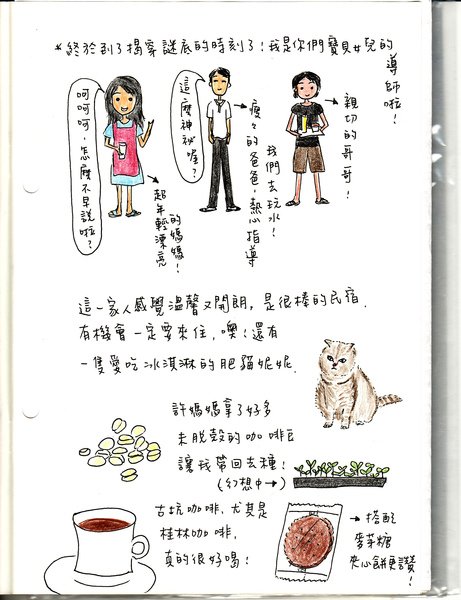 *終於到了揭穿謎底的時刻了!我是你們寶貝女兒的
導師啦!
呵呵呵,怎麼不早說啦?
超年輕漂亮
的媽媽!
這麼神祕喔?
瘦瘦的爸爸,熱心指導
我們去玩水!
親切的哥哥!
這一家人感覺溫馨又開朗,是很棒的民宿.
有機會一定要來住,噢!還有
一隻愛吃冰淇淋的肥貓妮妮.
許媽媽拿了好多
未脫殼的咖啡豆
讓我帶回去種!
(幻想中→)
古坑咖啡,尤其是
桂林咖啡,
真的很好喝!
→搭配
麥芽糖
夾心餅更讚!